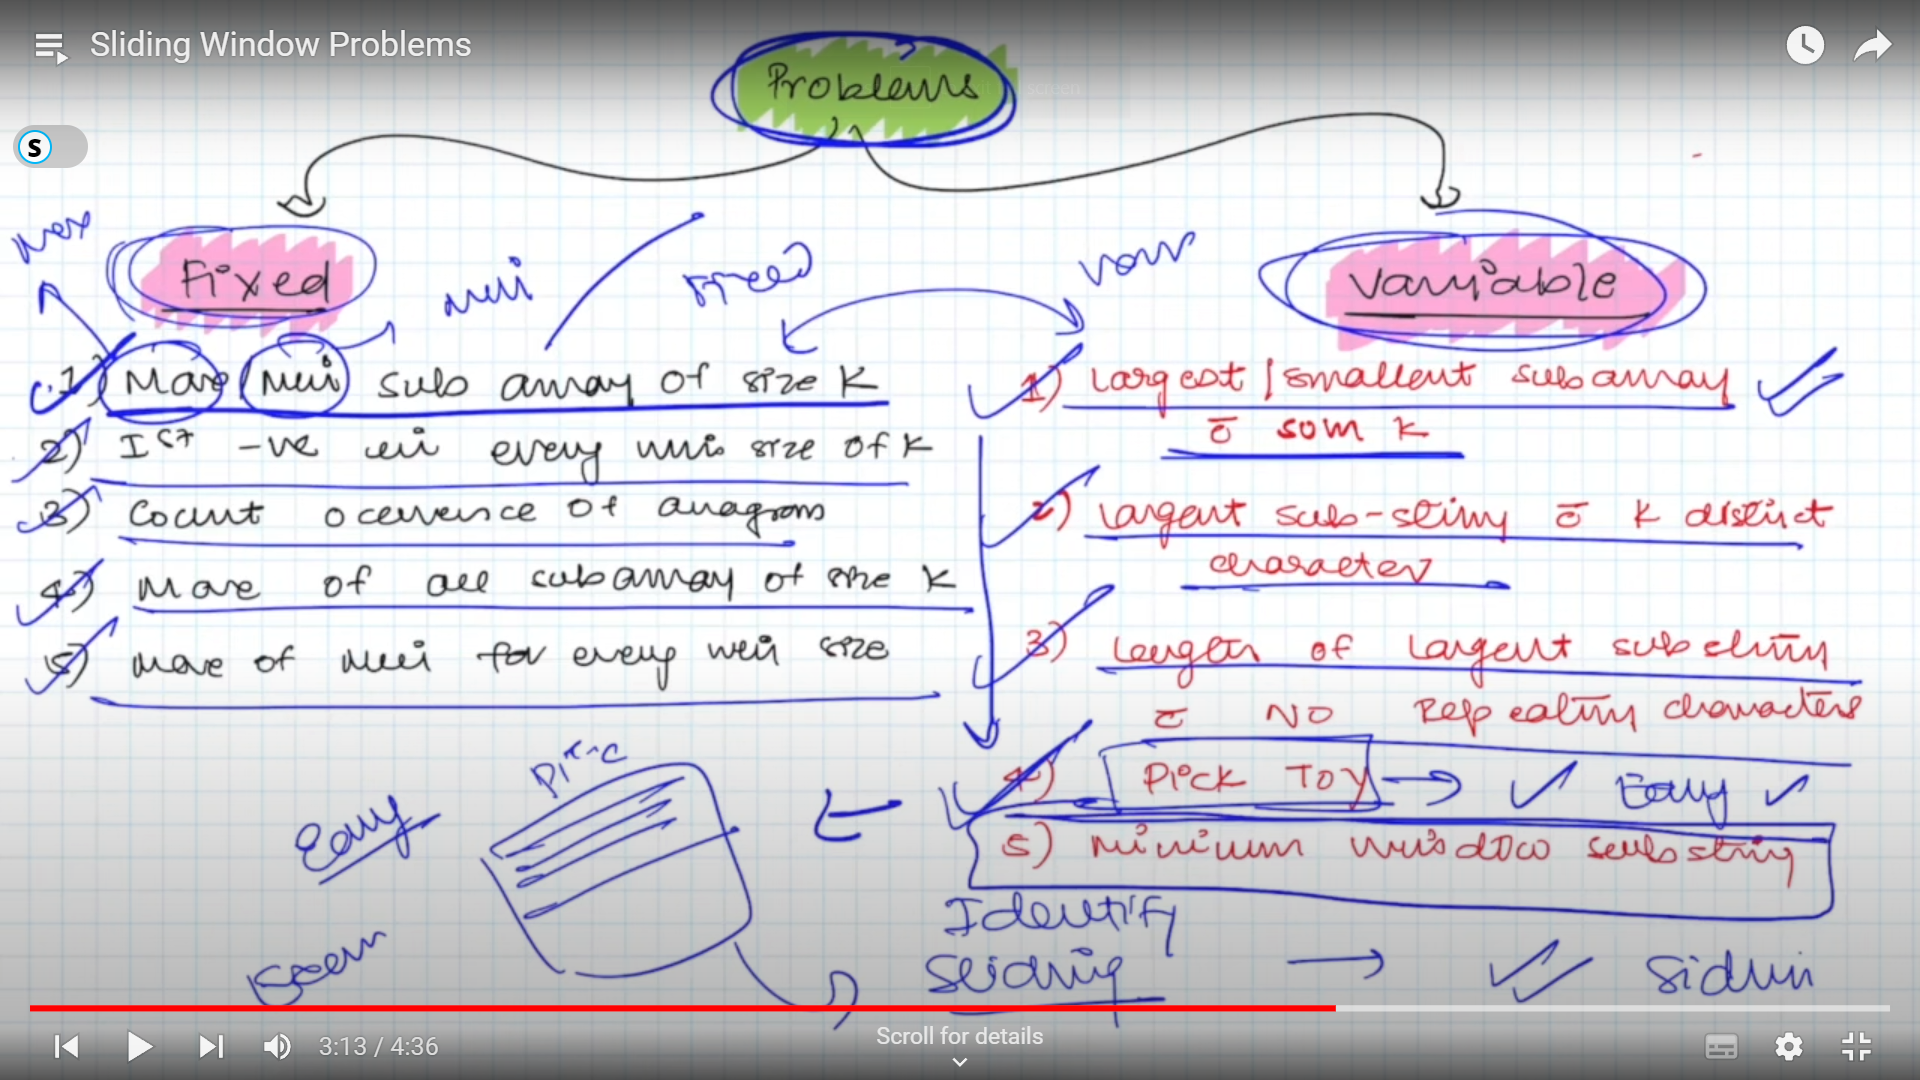 Sliding Window Problems
Problems
Max
Fixed
Mini
Fixed
Vari
Variable
1) Max/Mini sub array of size K
2) Ist -ve in every win size of K
3) Count occurence of anagram
4) Max of all subarray of size K
5) Max of Min for every win size
1) Largest/smallest subarray
c̄ sum K
2) Largest sub-string c̄ K distinct
character
3) Length of Largest substring
c̄ NO Repeating characters
4) Pick Toy → ✓ Easy ✓
5) Minimum window substring
Easy
Identify
Sliding →
3:13 / 4:36
Scroll for details